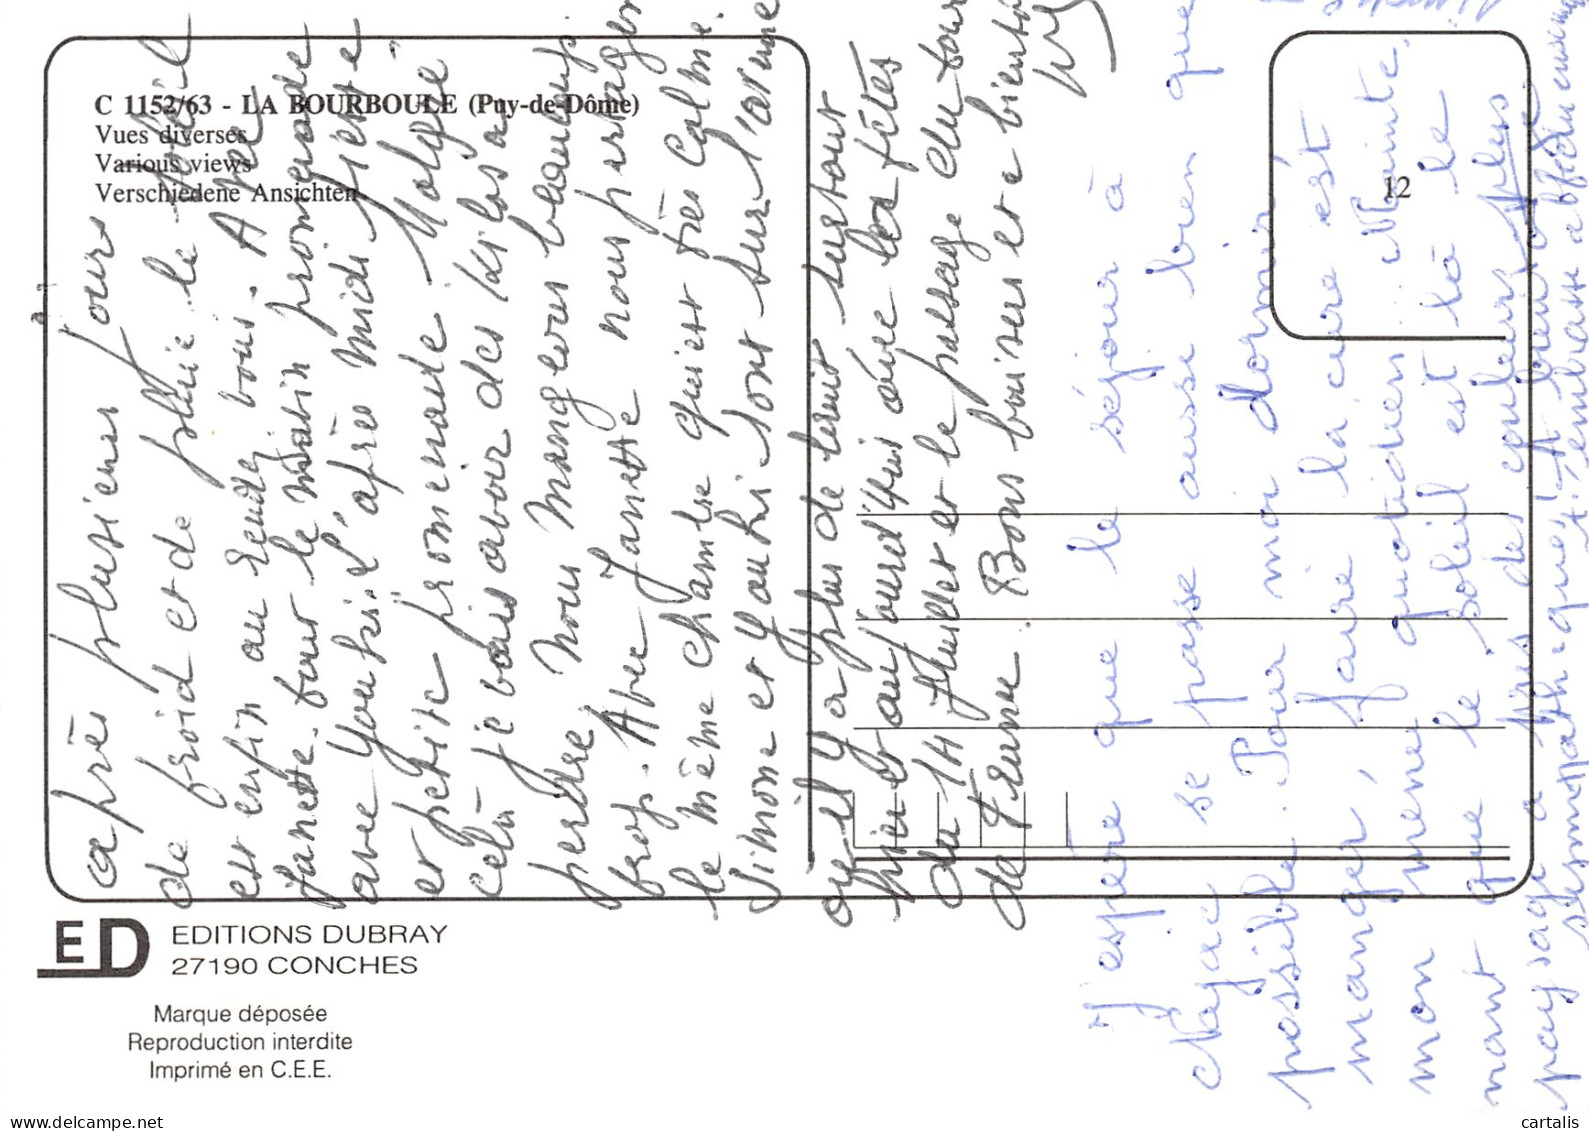 C 1152/63 - LA BOURBOULE (Puy-de-Dôme)
Vues diverses
Various views
Verschiedene Ansichten
12
après plusieurs jours
de froid et de pluie le soleil
est enfin au rendez vous. A
Janette. pour le matin promenade
avec l'après midi sieste
et petite promenade Malgré
cela je vais avoir des kilos a
perdre Nous mangeons beaucoup
trop. Avec Janette nous partageons
le même chambre quiest très calme.
Simone et sont sur l'
ou il y a plus de bruit surtout
hier et aujourd'hui avec les fêtes
du 14 Juillet et le passage du tour
de France. Bons baisers et a bientôt
J'espère que le séjour à
Najac se passe aussi bien que
possible. Pour moi dormir
manger, faire la cure est
mon menu quotidien. Mainte
nant que le soleil est là le
paysage a pris des couleurs plus
sympathiques. A bientôt
ED
EDITIONS DUBRAY
27190 CONCHES
Marque déposée
Reproduction interdite
Imprimé en C.E.E.
www.delcampe.net
cartalis